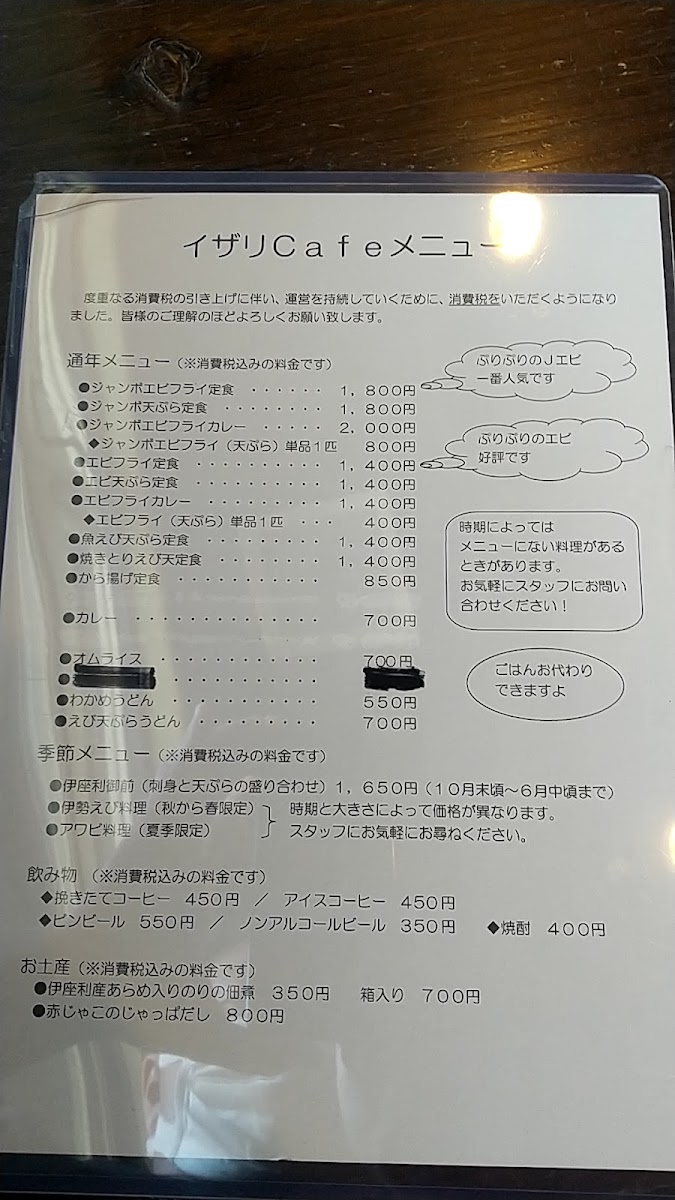 イザリCafeメニュー
度重なる消費税の引き上げに伴い、運営を持続していくために、消費税をいただくようになり
ました。皆様のご理解のほどよろしくお願い致します。
通年メニュー（※消費税込みの料金です）
●ジャンボエビフライ定食 ・・・・・・ 1，800円
●ジャンボ天ぷら定食 ・・・・・・・・ 1，800円
●ジャンボエビフライカレー ・・・・・ 2，000円
◆ジャンボエビフライ（天ぷら）単品1匹 800円
●エビフライ定食 ・・・・・・・・・・ 1，400円
●エビ天ぷら定食 ・・・・・・・・・・ 1，400円
●エビフライカレー ・・・・・・・・・ 1，400円
◆エビフライ（天ぷら）単品1匹 ・・・ 400円
●魚えび天ぷら定食 ・・・・・・・・・ 1，400円
●焼きとりえび天定食 ・・・・・・・・ 1，400円
●から揚げ定食 ・・・・・・・・・・・ 850円
●カレー ・・・・・・・・・・・・・ 700円
●オムライス ・・・・・・・・・・・・ 700円
●わかめうどん ・・・・・・・・・・・ 550円
●えび天ぷらうどん ・・・・・・・・・ 700円
ぷりぷりのJエビ
一番人気です
ぷりぷりのエビ
好評です
時期によっては
メニューにない料理がある
ときがあります。
お気軽にスタッフにお問い
合わせください！
ごはんお代わり
できますよ
季節メニュー（※消費税込みの料金です）
●伊座利御前（刺身と天ぷらの盛り合わせ）1，650円（10月末頃～6月中頃まで）
●伊勢えび料理（秋から春限定） 時期と大きさによって価格が異なります。
●アワビ料理（夏季限定） スタッフにお気軽にお尋ねください。
飲み物 （※消費税込みの料金です）
◆挽きたてコーヒー 450円 ／ アイスコーヒー 450円
◆ビンビール 550円 ／ ノンアルコールビール 350円 ◆焼酎 400円
お土産（※消費税込みの料金です）
●伊座利産あらめ入りのりの佃煮 350円 箱入り 700円
●赤じゃこのじゃっぱだし 800円